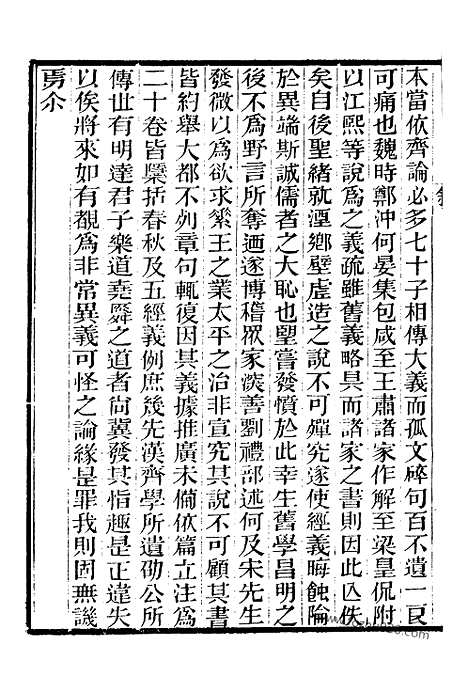 本當依齊論必多七十子相傳大義而孤文碎句百不遺一良
可痛也魏時鄭沖何晏集包咸至王肅諸家作解至梁皇侃附
以江熙等說爲之義疏雖舊義略具而諸家之書則因此亾佚
矣自後聖緒就湮鄉壁虛造之說不可殫究遂使經義晦蝕陯
於異端斯誠儒者之大恥也朢嘗發憤於此幸生舊學昌明之
後不爲野言所奪迺遂博稽眾家深善劉禮部述何及宋先生
發微以爲欲求素王之業太平之治非宣究其說不可顧其書
皆約舉大都不列章句輒復因其義據推廣未備依篇立注爲
二十卷皆檃括春秋及五經義例庶幾先漢齊學所遺劭公所
傳世有明達君子樂道堯舜之道者尙冀發其恉趣是正違失
以俟將來如有覩爲非常異義可怪之論緣是罪我則固無譏
焉尒